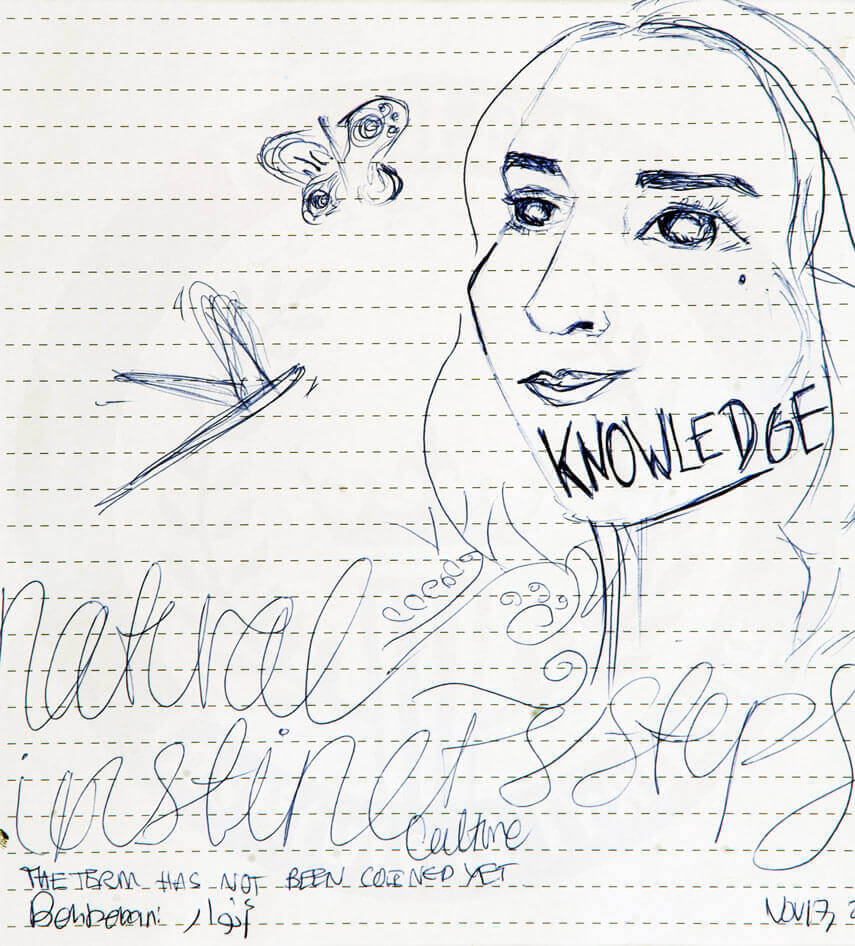 KNOWLEDGE
natural
instinct steps
Culture
THE TERM HAS NOT BEEN COINED YET
Behbehani أنوار
NOV 17, 2